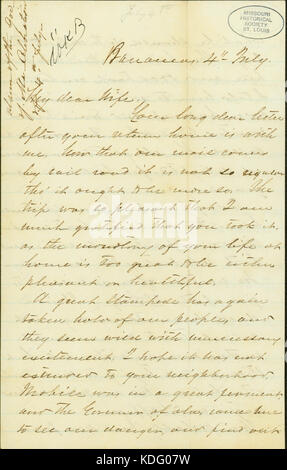 July 4th
MISSOURI
HISTORICAL
SOCIETY
ST. LOUIS
Alarm of the Gov
of Ala
4 July
Box B
Bananas, 4th July.
My dear Wife,
Your long dear letter
after your return home is with
me. Now that our mail comes
by rail road it is not so regular
tho' it ought to be more so. The
trip was so pleasant that I am
much gratified that you took it,
as the monotony of your life at
home is too great to be either
pleasant or healthful.
A great stampede has again
taken hold of our people, and
they seem wild with unnecessary
excitement. I hope it has not
extended to your neighborhood.
Mobile was in a great ferment
and the Governor of Ala. came here
to see our danger, and find out
alamy
Image ID: KDG07W
www.alamy.com